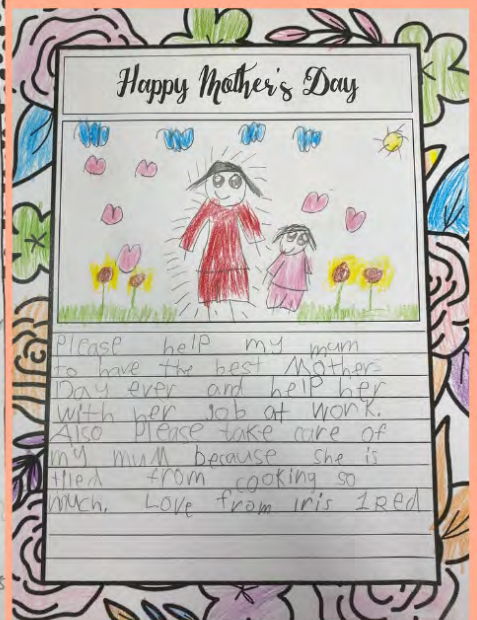 Happy Mother's Day
Please help my mum
to have the best Mothers
Day ever and help her
with her job at work.
Also please take care of
my mum because she is
tied from cooking so
much. Love from iris 1Red